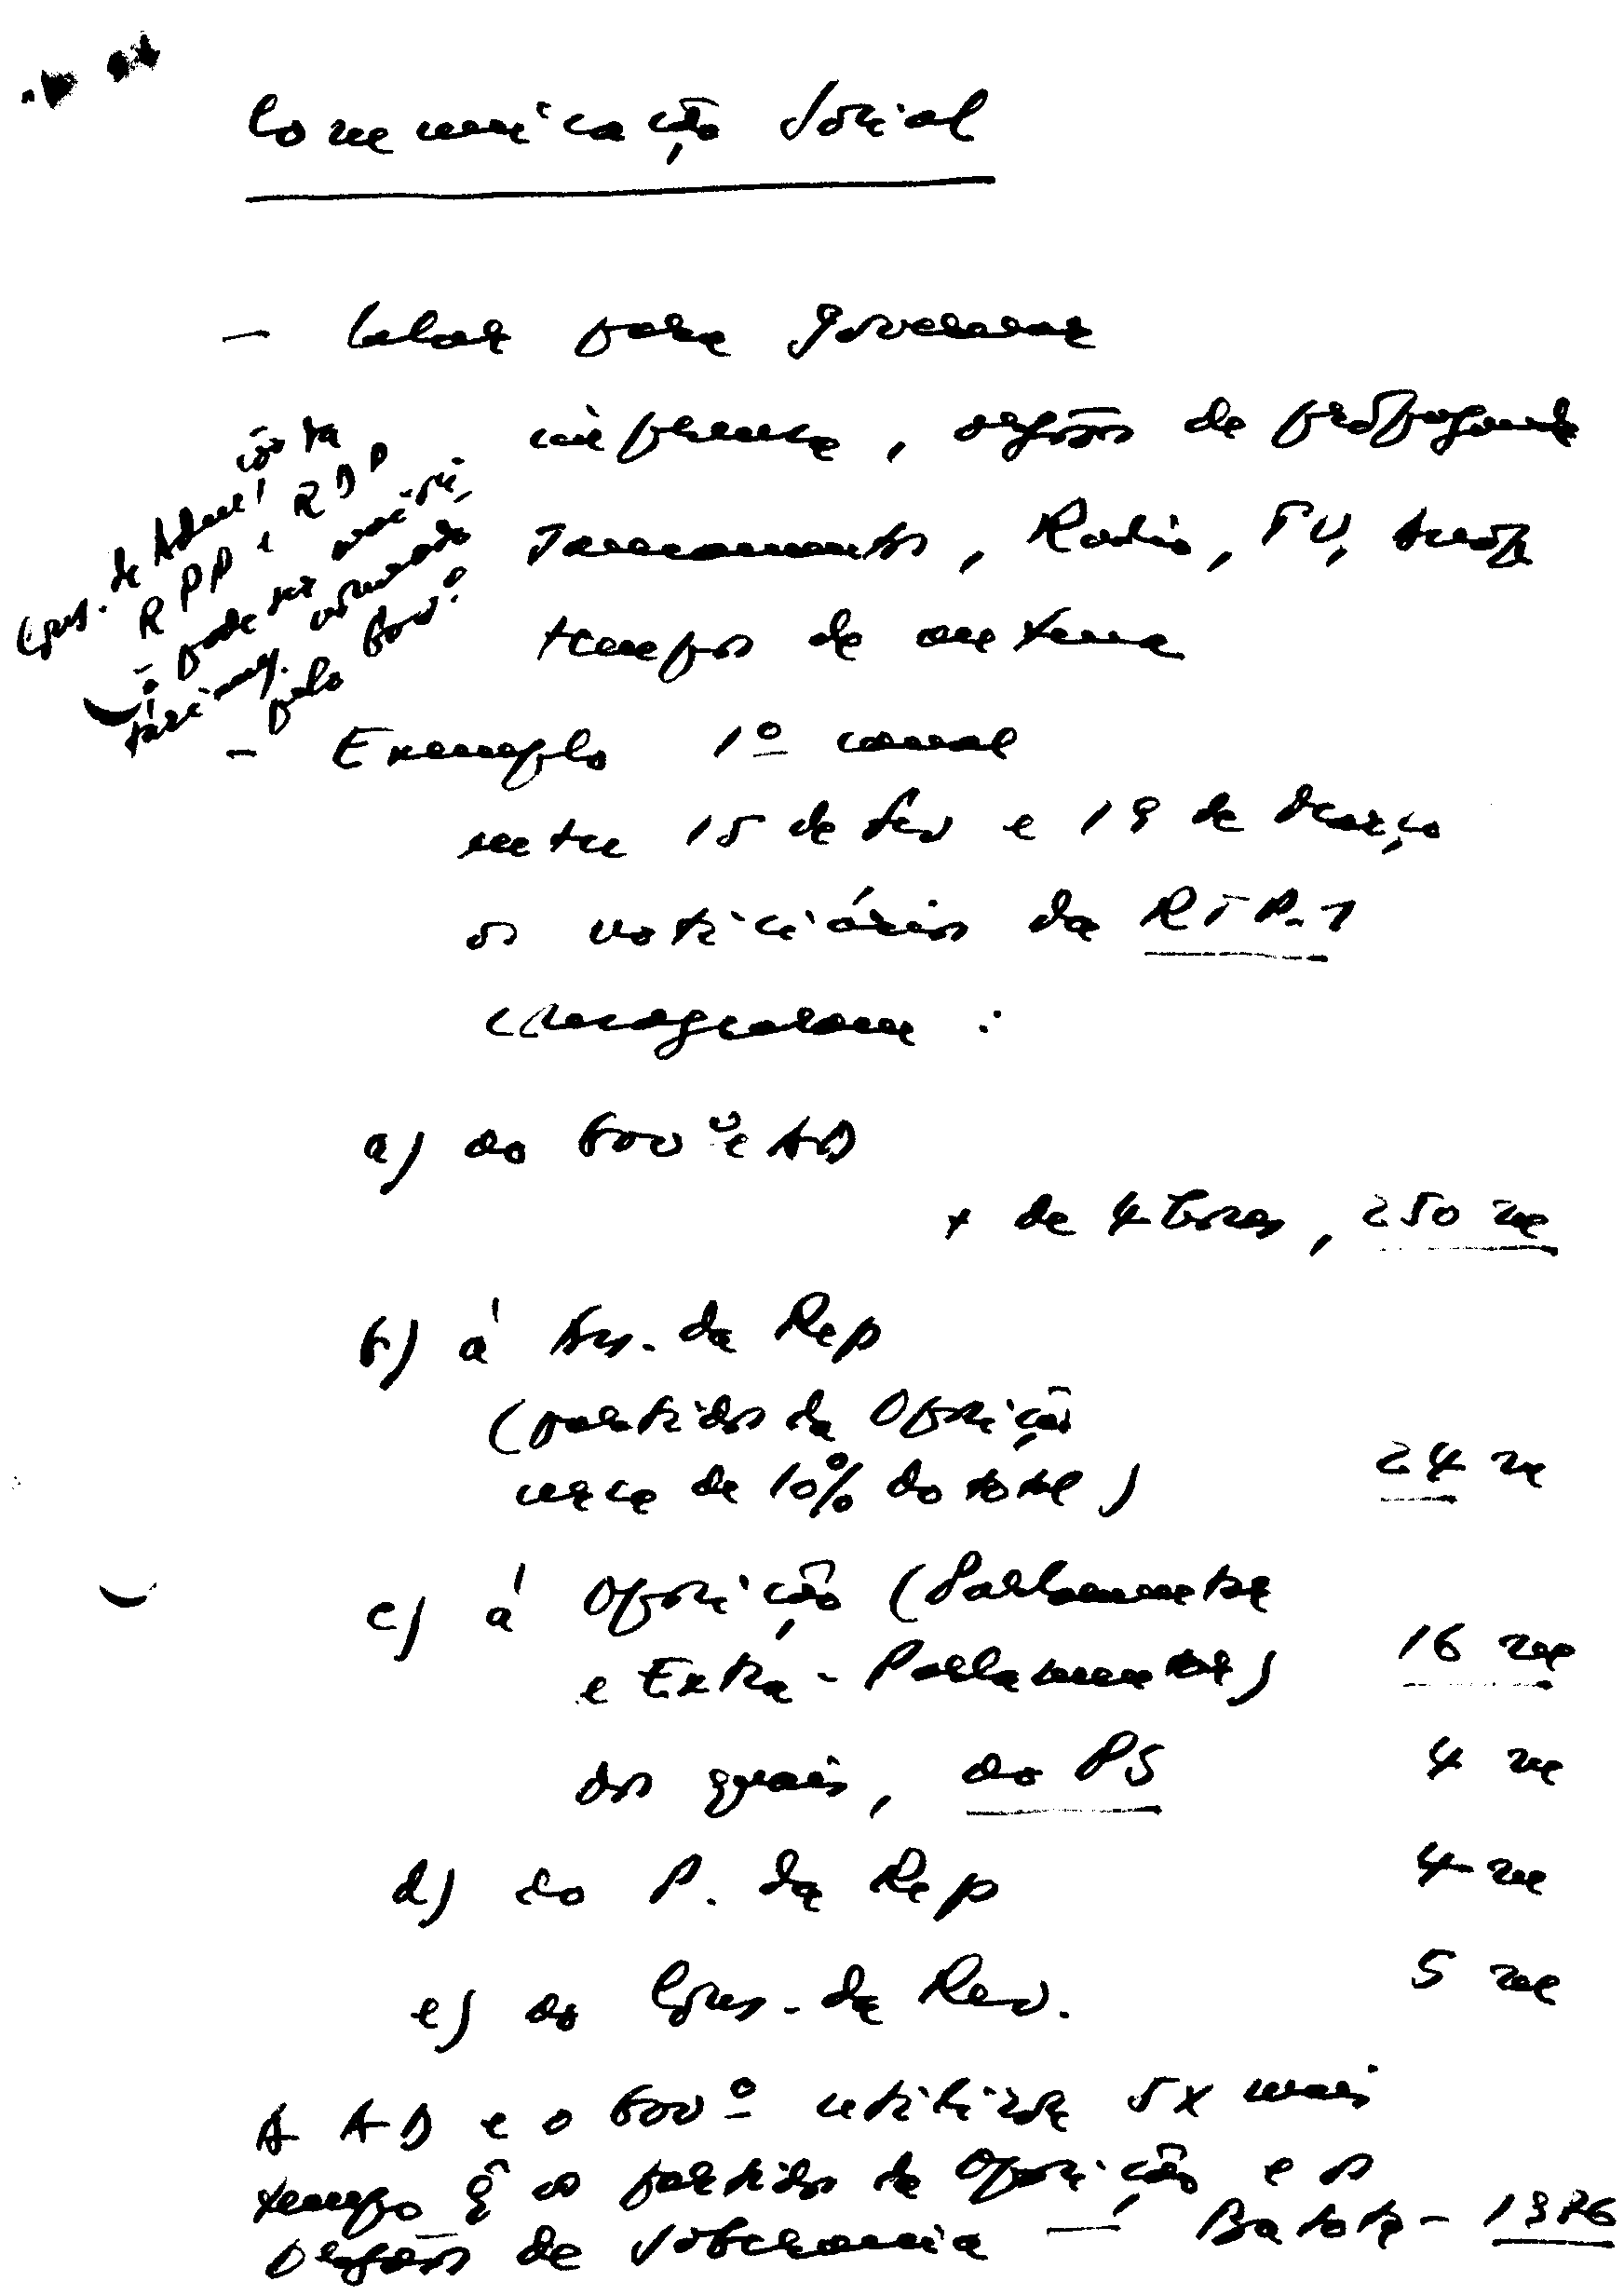 Comunicação Social
— Calar para governar
imprensa, orgãos de propaganda
Saneamentos, Radio, TV,
tempos de antena
Cons. de Adm!
RPP e RDP
pode ser
pelo Gov.º
— Exemplo 1º canal
entre 15 de Fev e 19 de Março
os noticiários da RTP-1
consagraram :
a) ao Govº e AD
+ de 4 horas, 250 m
b) á Ass. da Rep
(partidos da Oposição
cerca de 10% do total) 24 m
c) á Oposição (Parlamentar
e Extra-Parlamentar) 16 m
dos quais, ao PS 4 m
d) ao P. da Rep 4 m
e) ao Cons. da Rev. 5 m
A AD e o Govº utiliza 5x mais
tempo q os partidos da Oposição e os
Orgãos de Soberania — Batota - 1976